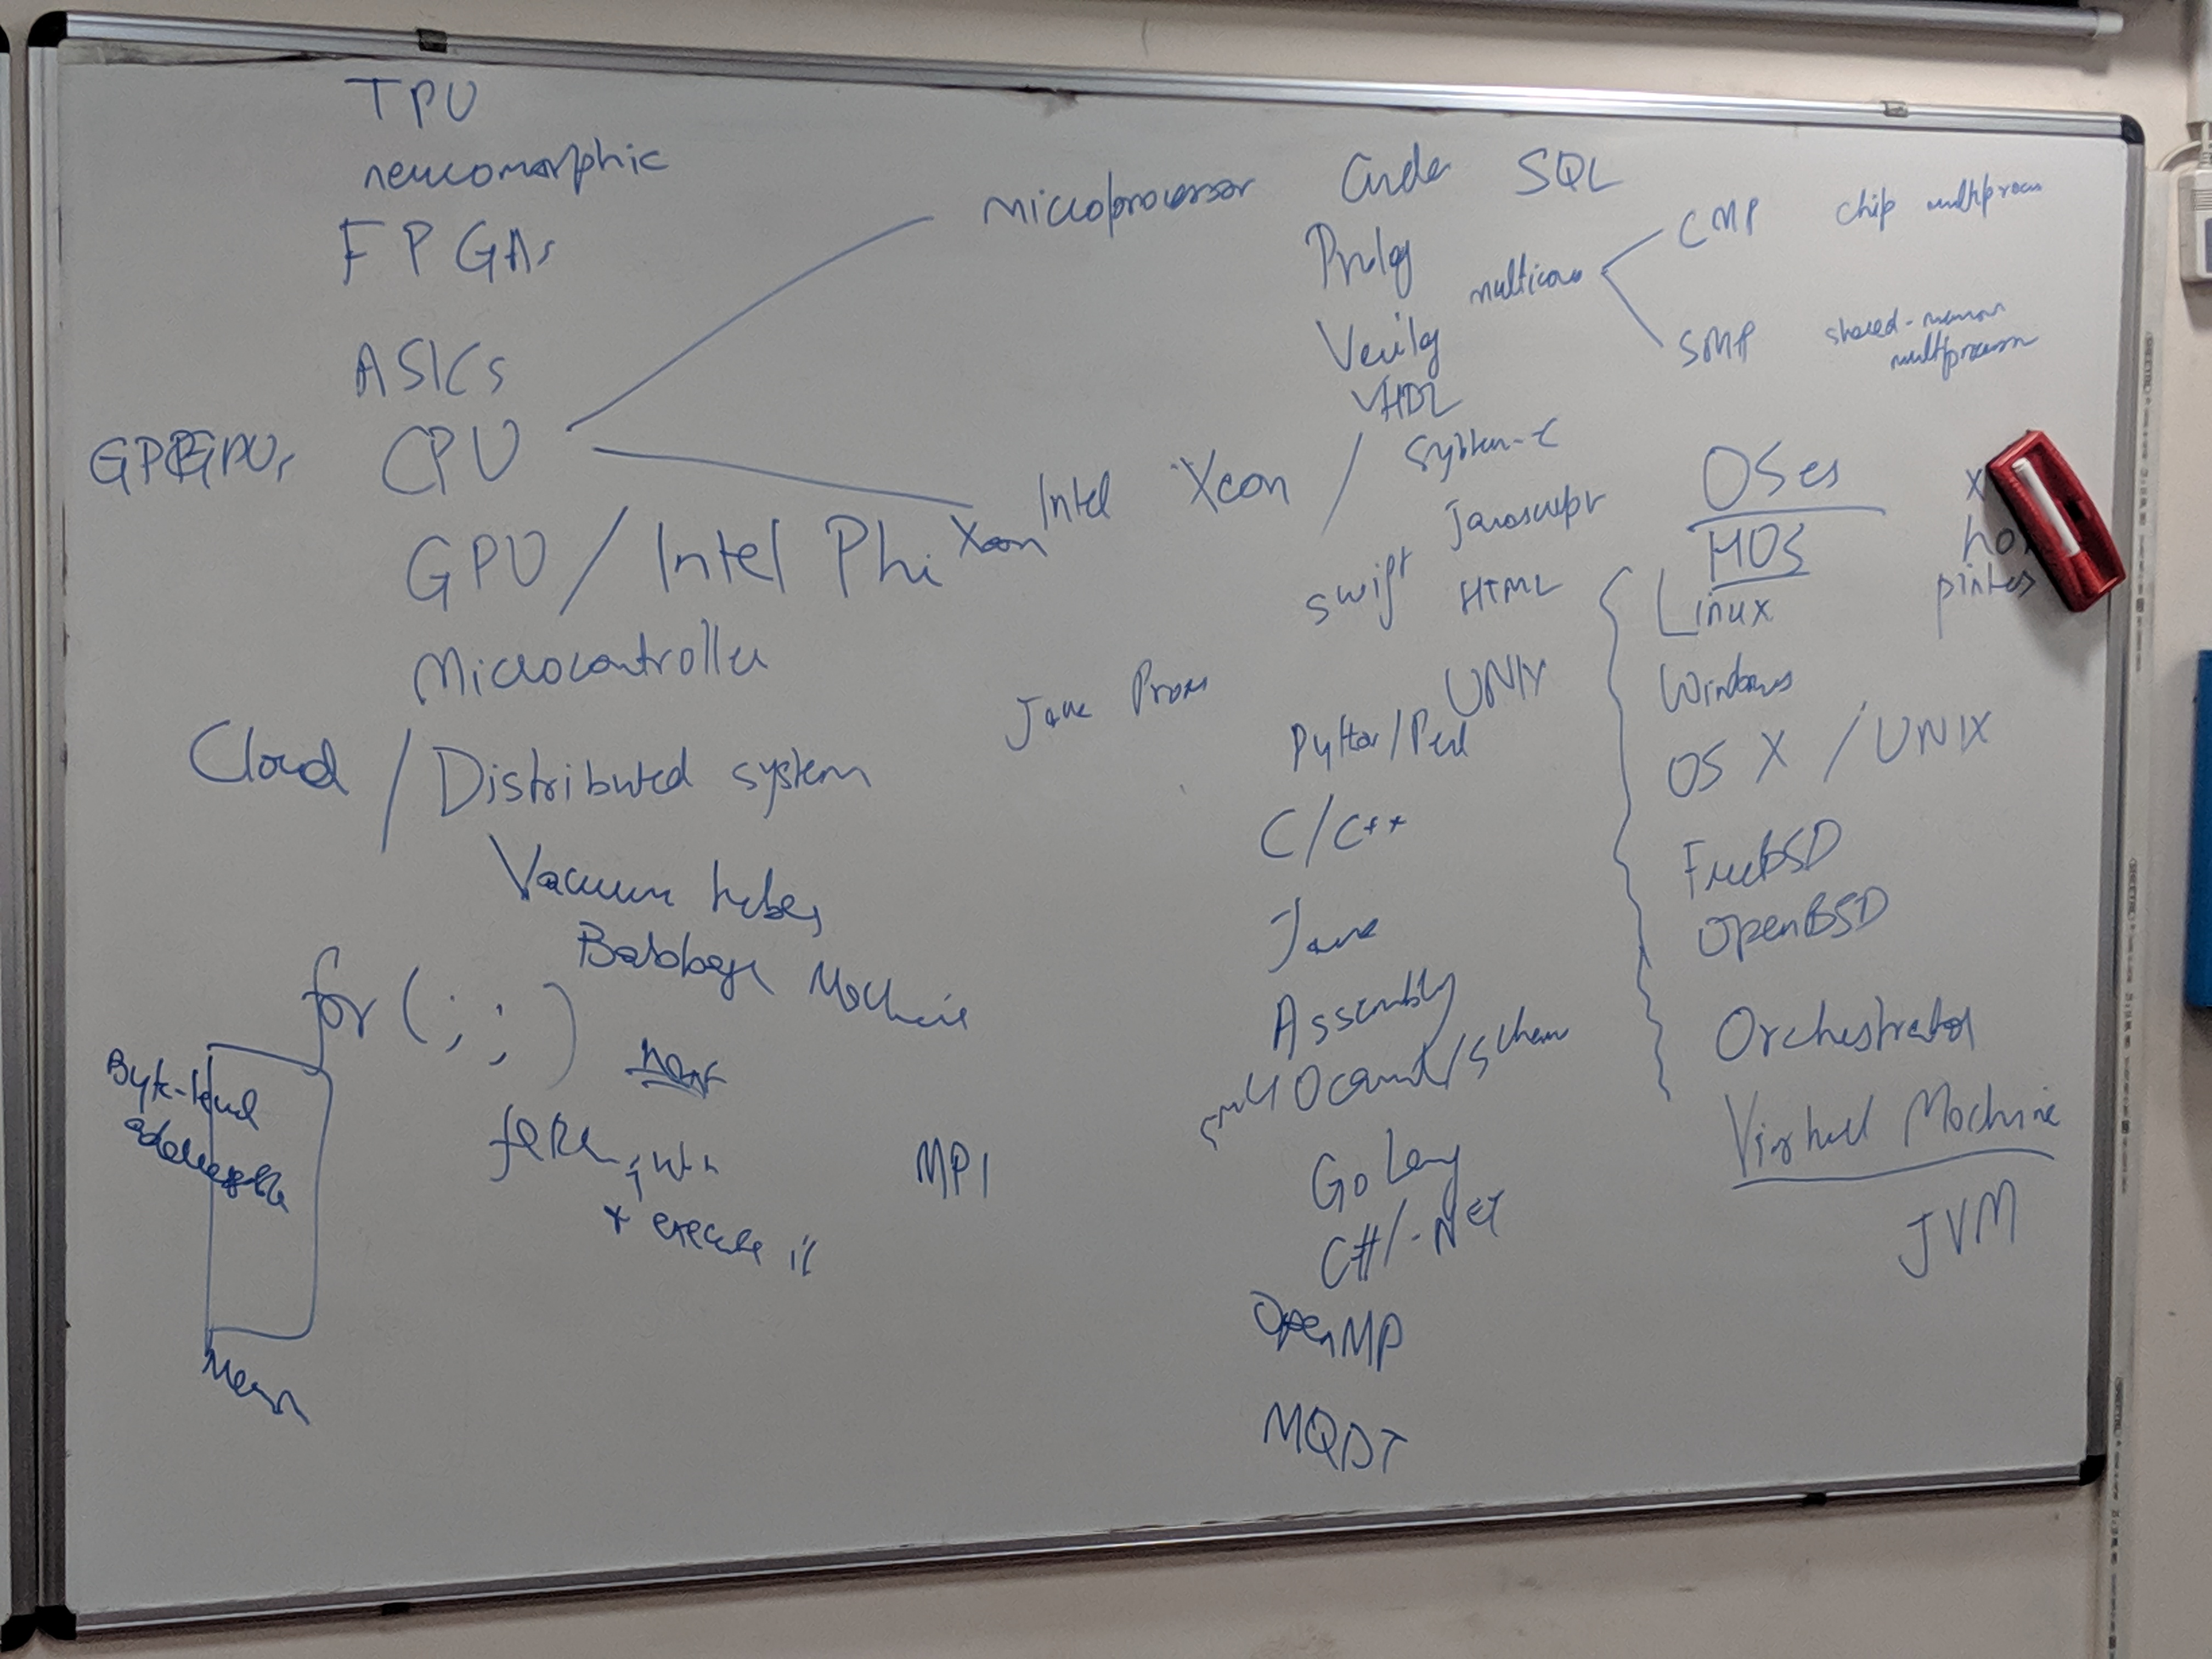 TPU
neuromorphic
FPGAs
ASICs
GPGPUs
CPU
GPU / Intel Phi Xeon
Microcontroller
Cloud / Distributed system
Vacuum tubes
Babbage Machine
for (; ;)
Byte-level
addressable
Mem
fetch instn
+ execute it
MPI
microprocessor
Intel Xeon /
Java
Cuda SQL
Prolog
Verilog
VHDL
System-C
Javascript
Swift HTML
UNIX
Python/Perl
C/C++
Java
Assembly
Ocaml/Scheme
GoLang
C#/.NET
OpenMP
MQDT
multicore
CMP chip multiproc
SMP shared-memory
multiprocessor
OSes
MOS
Linux
Windows
OS X / UNIX
FreeBSD
OpenBSD
Orchestrator
Virtual Machine
JVM
pintos